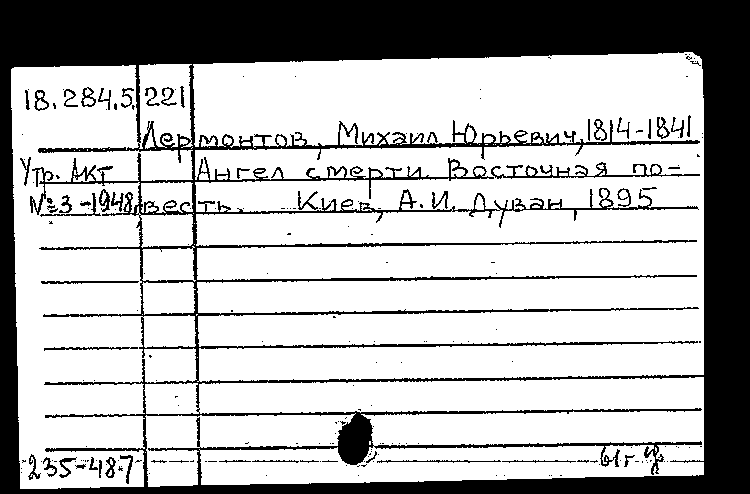 18.284.5. 221
Лермонтов, Михаил Юрьевич, 1814-1841
Утр. Акт Ангел смерти. Восточная по-
№3-1948. весть. Киев, А.И. Дуван, 1895
235-48.7 61г